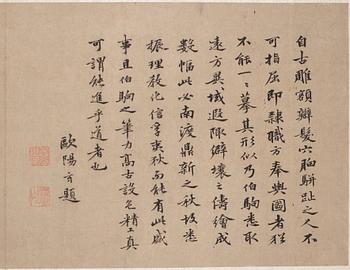 自古雕額辮髮穴胸駢趾之人不
可指屈即隸職方奉輿圖者猶
不能一一摹其形似乃伯駒悉取
遠方異域遐陬僻壤之儔繪成
數幅此必南渡鼎新之秋故悉
振理教化信孚夷狄而能有此盛
事且伯駒之筆力高古設色精工真
可謂能進乎道者也
歐陽玄題